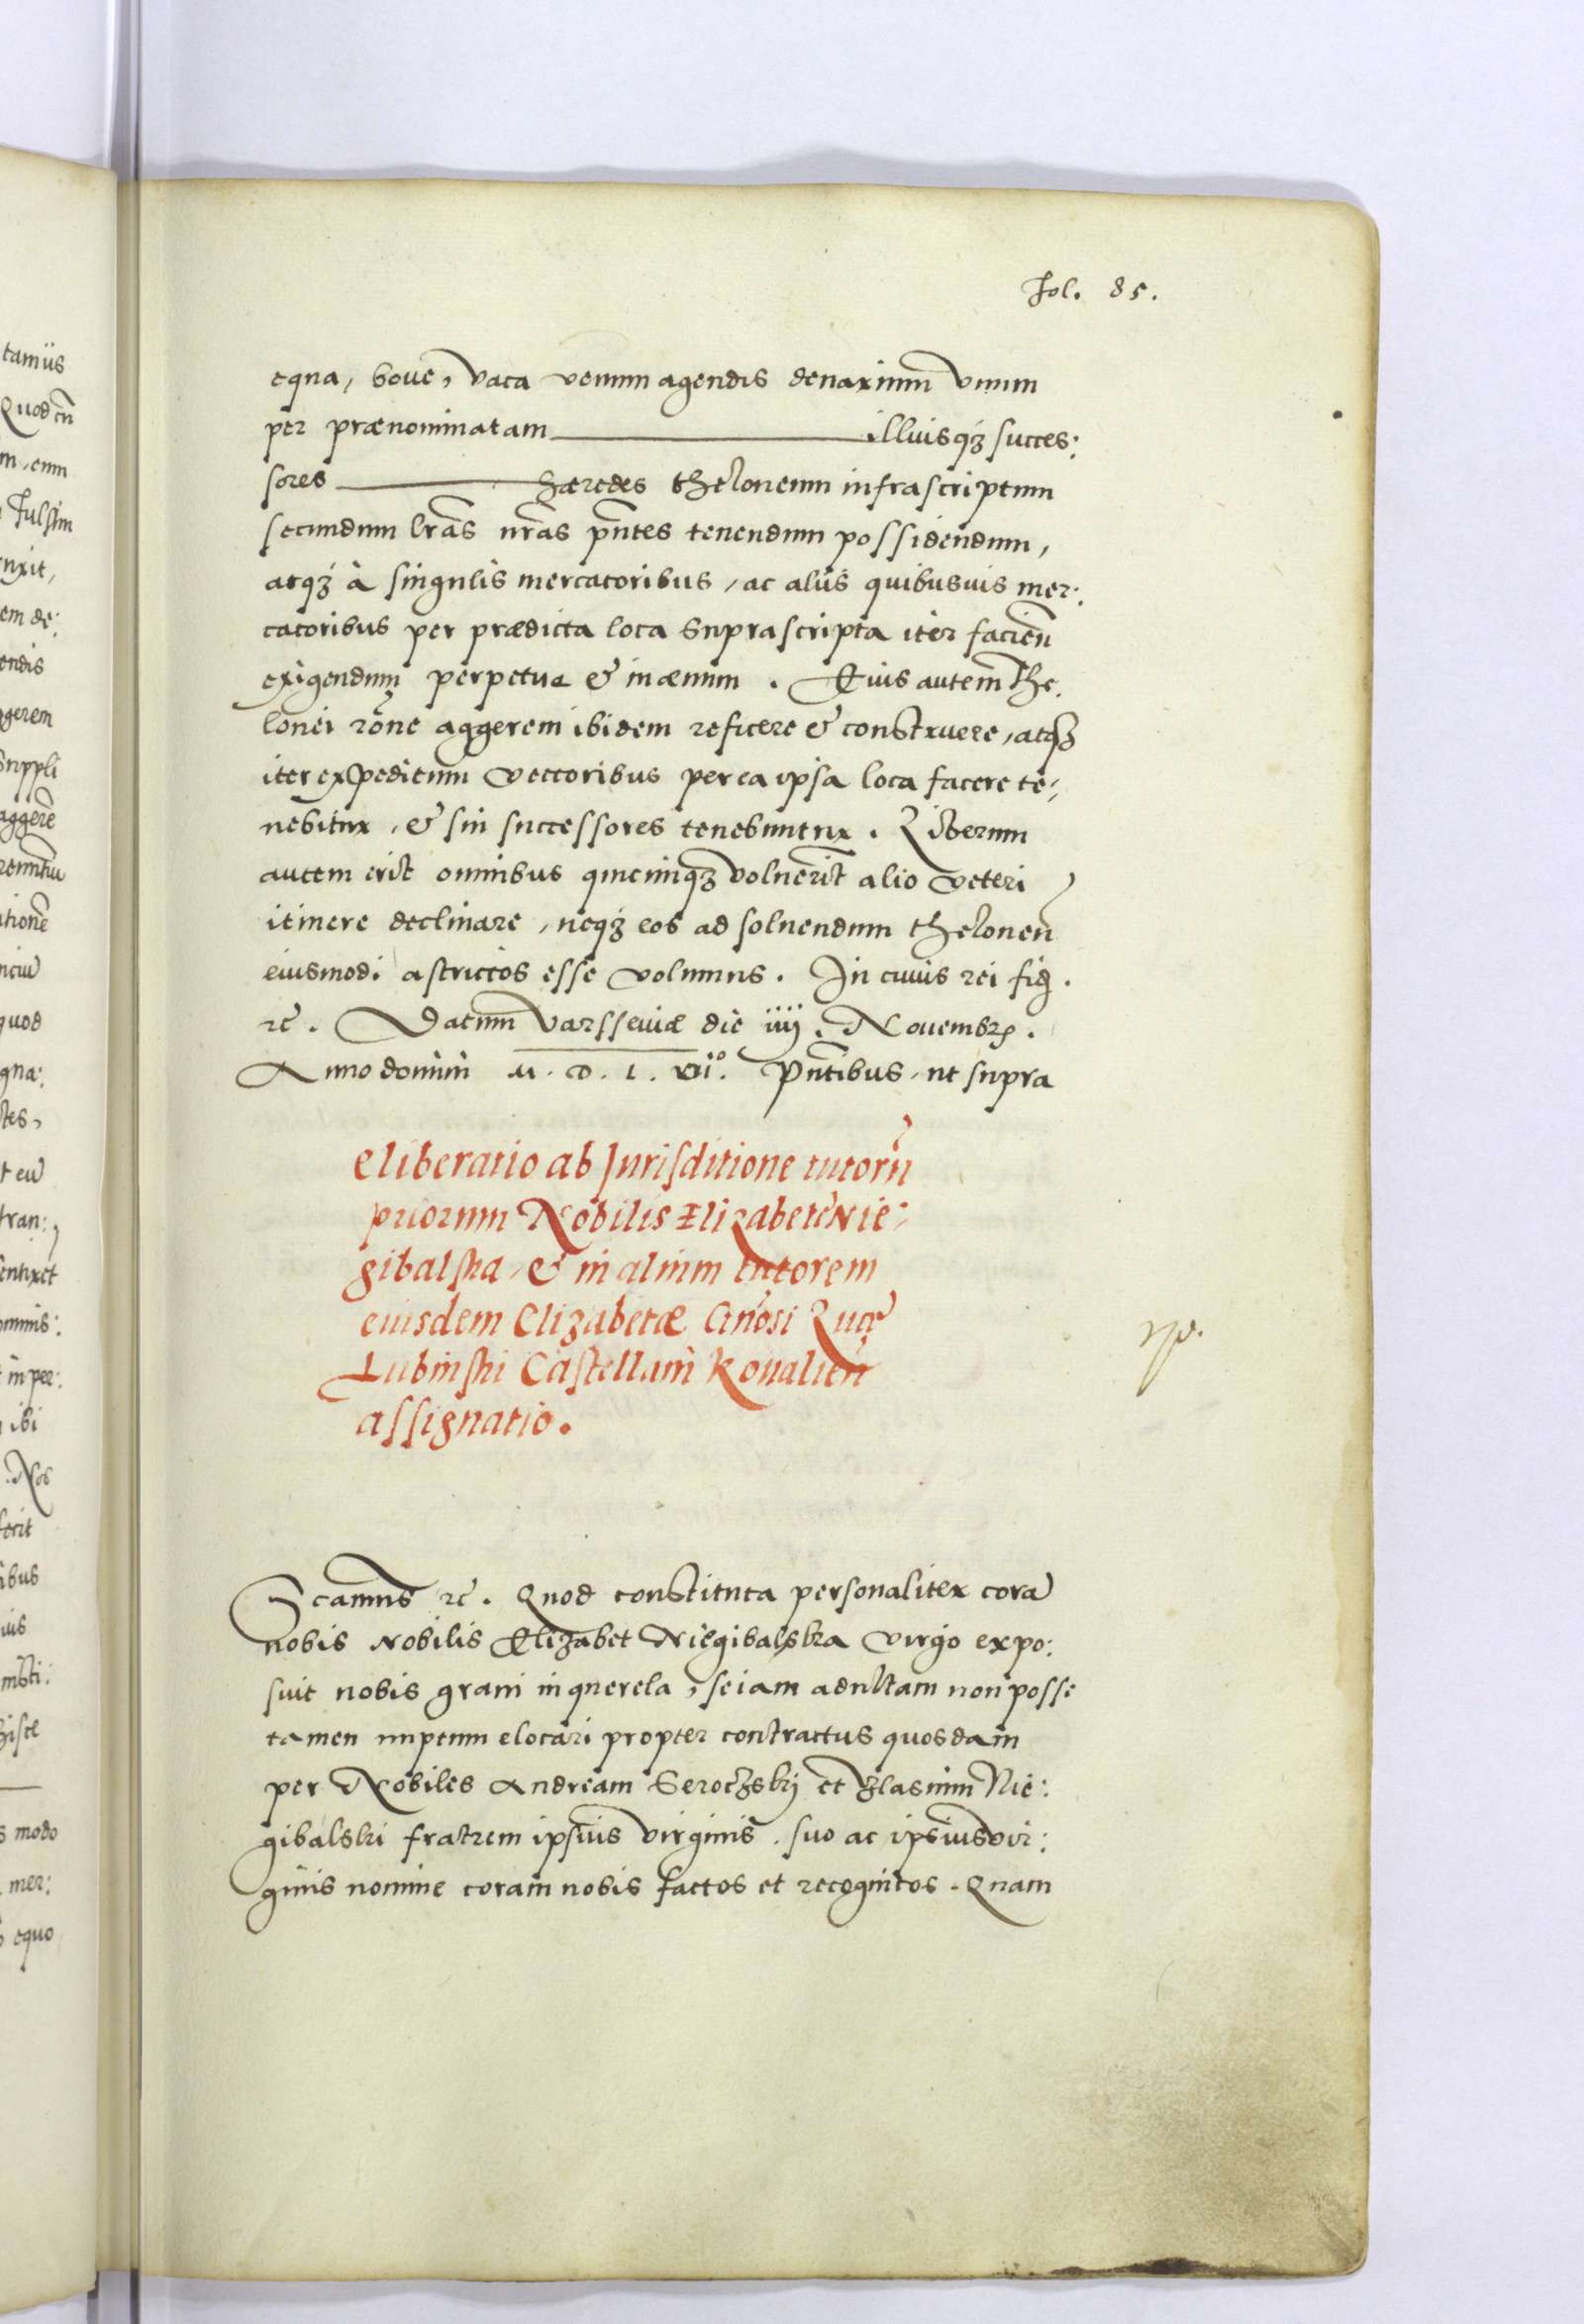 Fol. 85.
equa, boue, vaca venum agendis denarium vnum
per prænominatam illiusq3 succes:
sores hæredes theloneum infrascriptum
secundum lr̃as nr̃as pñtes tenendum possidendum,
atq3 à singulis mercatoribus, ac aliis quibusuis mer:
catoribus per prædicta loca suprascripta iter facieñ
exigendum perpetuæ & in æuum. Eius autem the:
lonei rõne aggerem ibidem reficere & construere, atq3
iter expeditum vectoribus per ea ipsa loca facere te:
nebitur, & sui successores tenebuntur. Liberum
autem erit omnibus quicunq3 voluerit alio veteri
itinere declinare, neq3 eos ad soluendum theloneũ
eiusmodi astrictos esse volumus. In cuius rei fig.
rc̃. Datum Varsseuiæ die iiij. Nouembr.
Anno domini M. D. L. VIIo. Pñtibus, ut supra
eliberatio ab Jurisditione tutorũ
priorum Nobilis Elizabete Nie:
gibalska, & in alium tutorem
eiusdem Elizabetæ Gñosi Lucę
Lubinski Castellani Koualieñ
assignatio.
Scamus rc̃. Quod constituta personaliter corã
nobis Nobilis Elizabet Niegibalska virgo expo:
suit nobis graui in querela, se iam adultam non posse
tamen nuptum elocari propter contractus quosdam
per Nobiles Andream Seroczskij et Blasium Nie:
gibalski fratrem ipsius virginis. suo ac ipsius vir:
ginis nomine coram nobis factos et recognitos. Quam